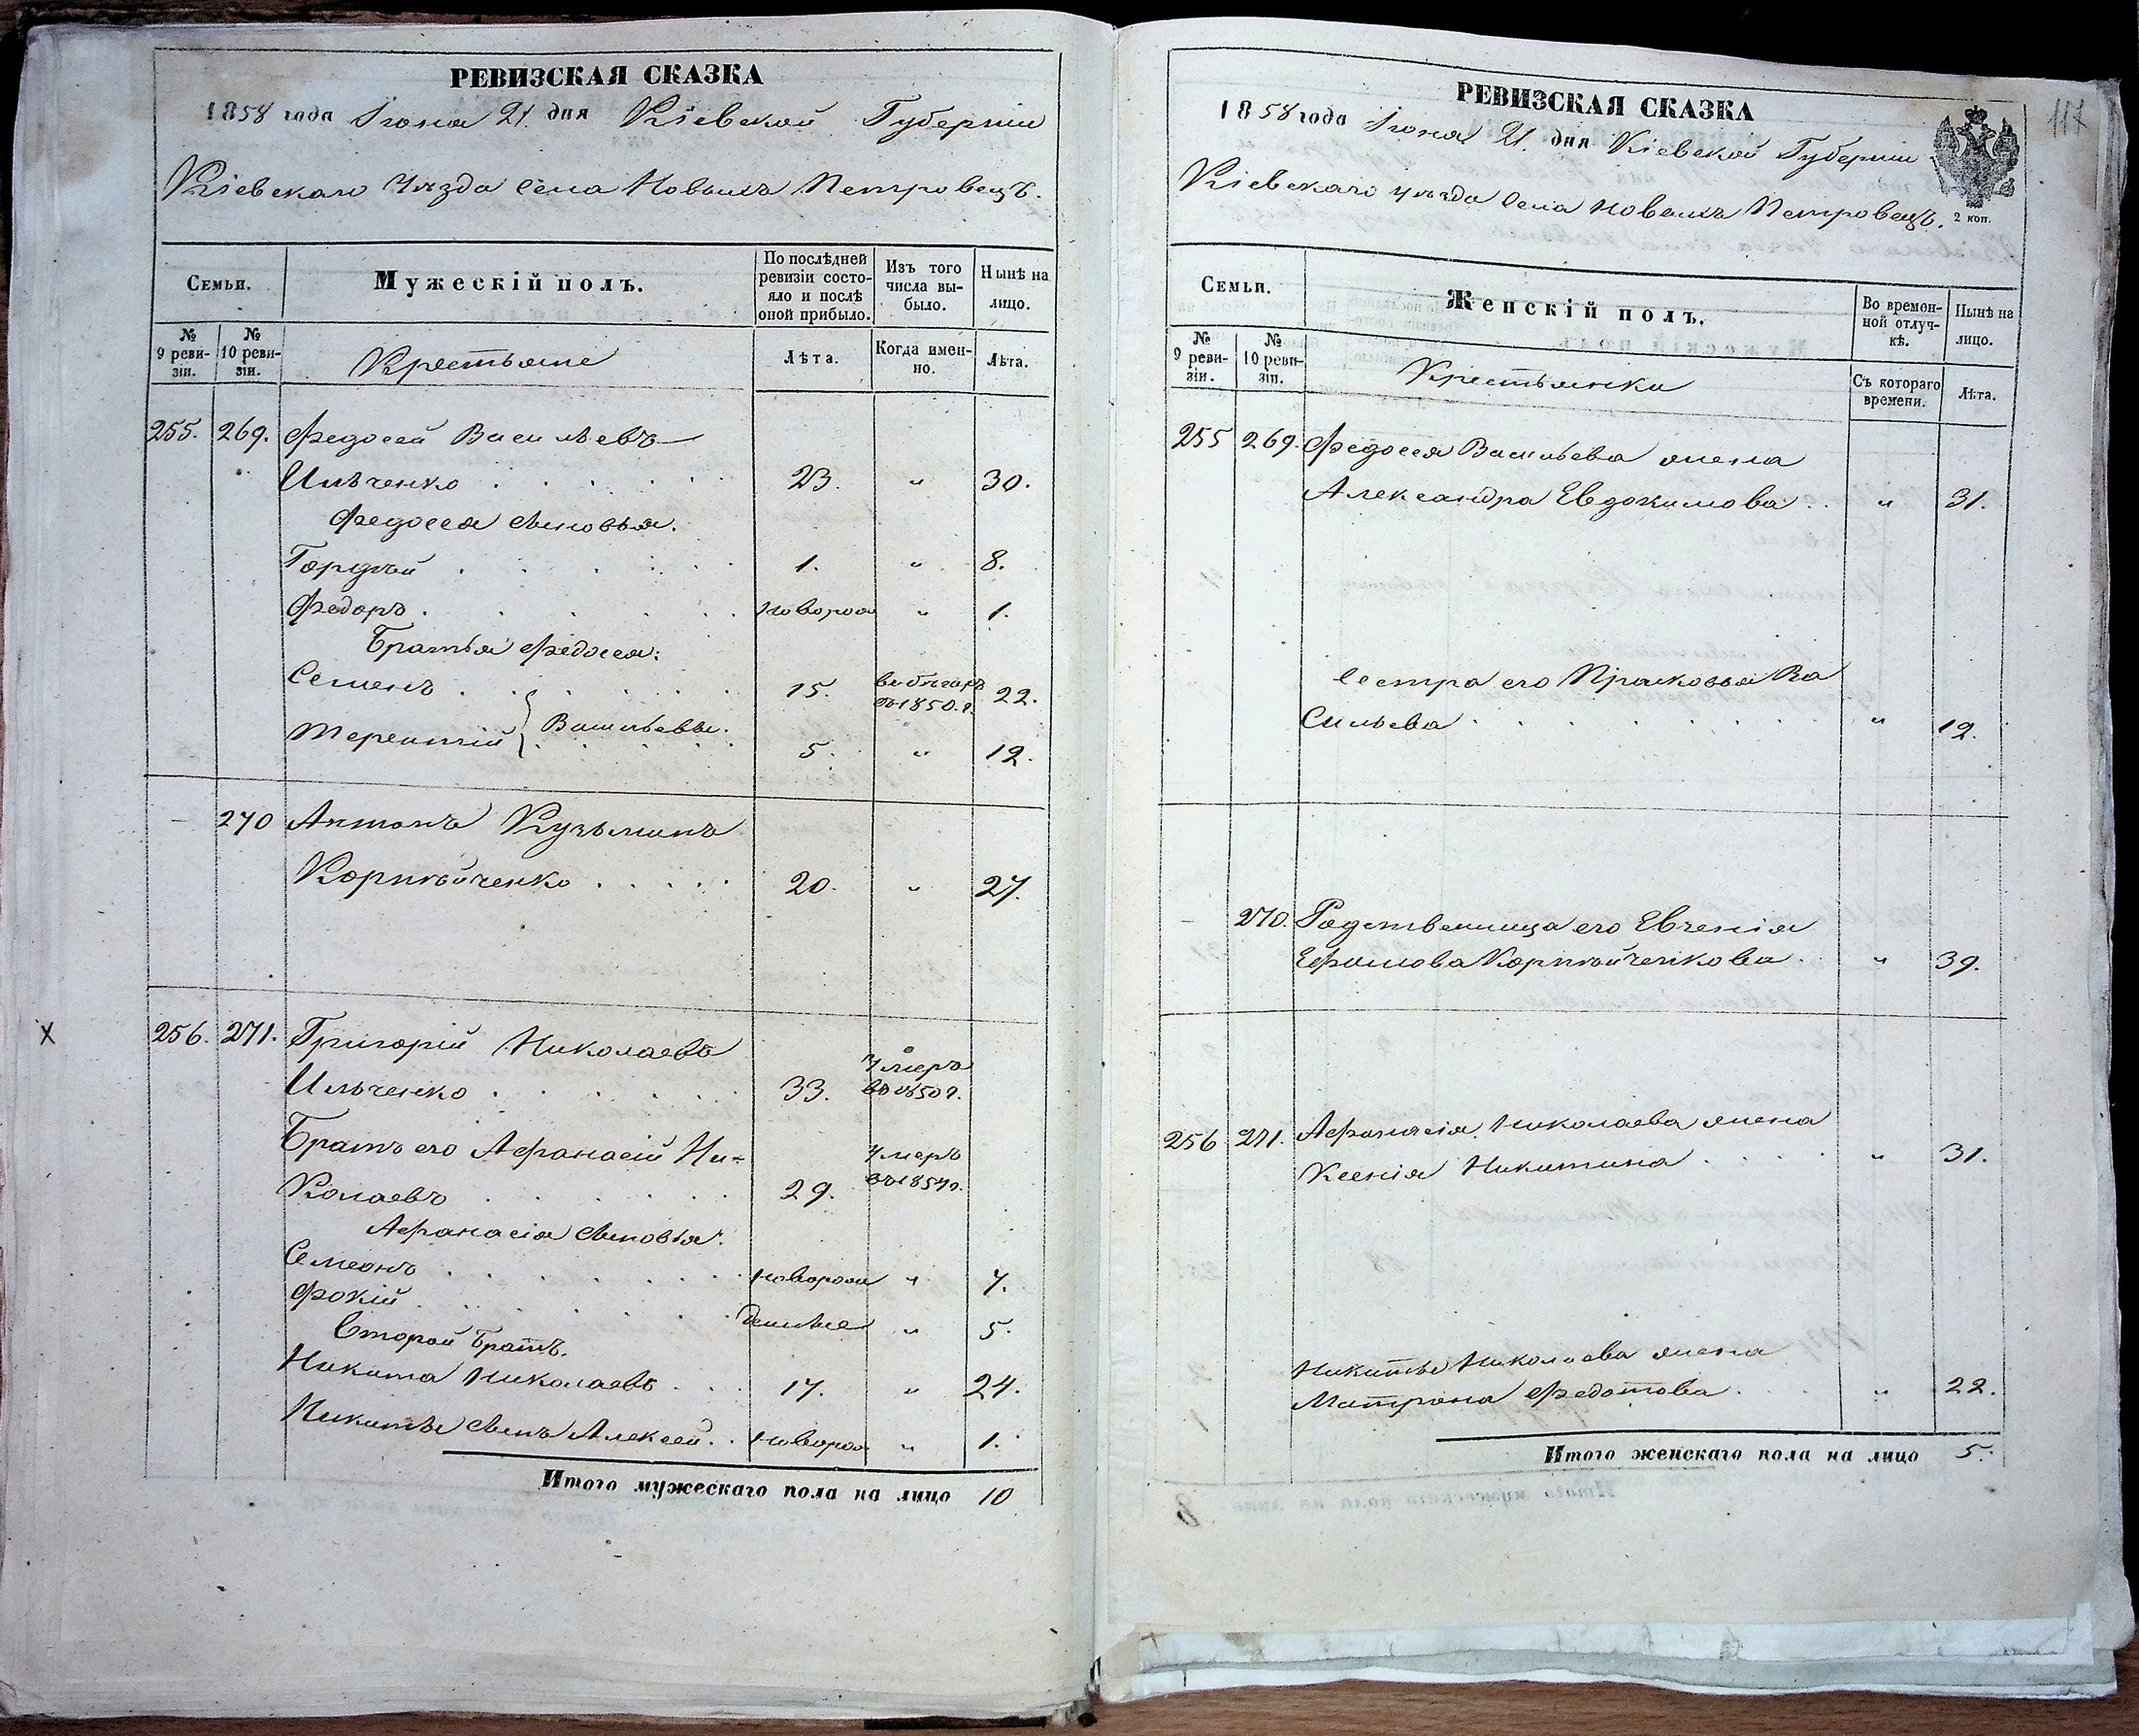 РЕВИЗСКАЯ СКАЗКА
1858 года Іюня 21. дня Кіевской Губерніи
Кіевскаго Уѣзда Села Новыхъ Петровецъ.
Семьи.
Мужескій полъ.
По послѣдней ревизіи состо-
яло и послѣ
оной прибыло.
Изъ того
числа вы-
было.
Нынѣ на
лицо.
№
9 реви-
зіи.
№
10 реви-
зіи.
Крестьяне
Лѣта.
Когда имен-
но.
Лѣта.
255. 269. Федосей Васильевъ
Ильченко . . . . . . 23. " 30.
Федосея сыновья.
Гордѣй . . . . . . 1. " 8.
Федоръ . . . . . . новорож " 1.
Братья Федосея:
Семенъ . . . . . . 15. въ бѣгахъ
съ 1850. г. 22.
Терентій } Васильевы. 5. " 12.
270 Антонъ Кузьминъ
Корнѣйченко . . . . . 20. " 27.
256. 271. Григорій Николаевъ
Ильченко . . . . . . 33. Умеръ
въ 1850 г.
Братъ его Афанасій Ни-
колаевъ . . . . . . 29. Умеръ
въ 1857 г.
Афанасія сыновья.
Семеонъ . . . . . . новорож " 7.
Фокій . . . . . . " 5.
Второй братъ.
Никита Николаевъ . . . 17. " 24.
Никиты сынъ Алексей. . новорож " 1.
Итого мужескаго пола на лицо 10
117
РЕВИЗСКАЯ СКАЗКА
1858 года Іюня 21. дня Кіевской Губерніи
Кіевскаго уѣзда Села Новыхъ Петровецъ.
2 коп.
Семьи.
Женскій полъ.
Во времен-
ной отлуч-
кѣ.
Нынѣ на
лицо.
№
9 реви-
зіи.
№
10 реви-
зіи.
Крестьянки
Съ котораго
времени.
Лѣта.
255 269. Федосея Васильева жена
Александра Евдокимова . . " 31.
Сестра его Прасковья Ва
сильева . . . . . . " 12.
270. Родственница его Евгенія
Ефимова Корнѣйченкова . . " 39.
256 271. Афанасія Николаева жена
Ксенія Никитина . . . . " 31.
Никиты Николаева жена
Матрона Федотова . . . . " 22.
Итого женскаго пола на лицо 5.